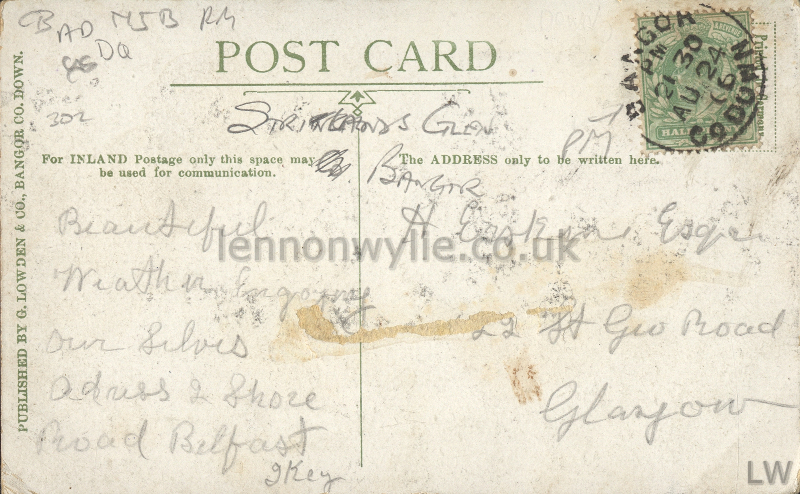 BAD M5B RM
DQ
302
POST CARD
STRICKLANDS GLEN
BANGOR
PM
For INLAND Postage only this space may be used for communication.
The ADDRESS only to be written here.
PUBLISHED BY G. LOWDEN & CO., BANGOR CO. DOWN.
BANGOR
PM
21 30
AU 24
06
CO DOWN
HALF
Beautiful
Weather Engoying
our Selves
adress 2 Shore
Road Belfast
H Erskine Esqr
22 St Geo Road
Glasgow
lennonwylie.co.uk
LW